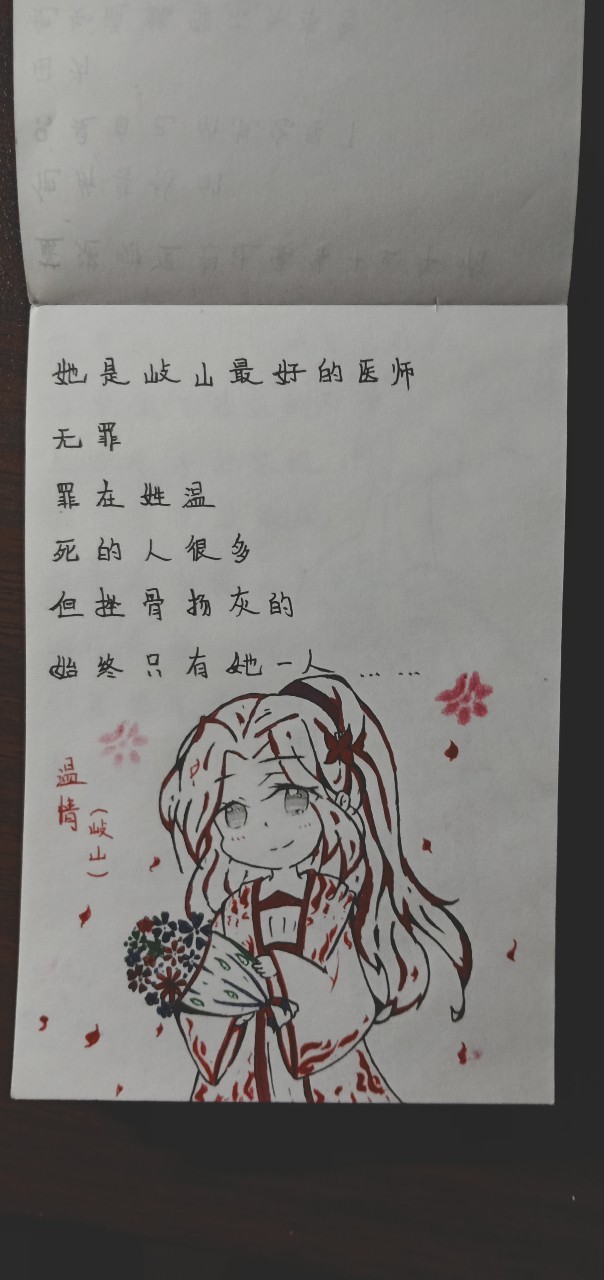 她是岐山最好的医师
无罪
罪在姓温
死的人很多
但挫骨扬灰的
始终只有她一人……
温情
(岐山)